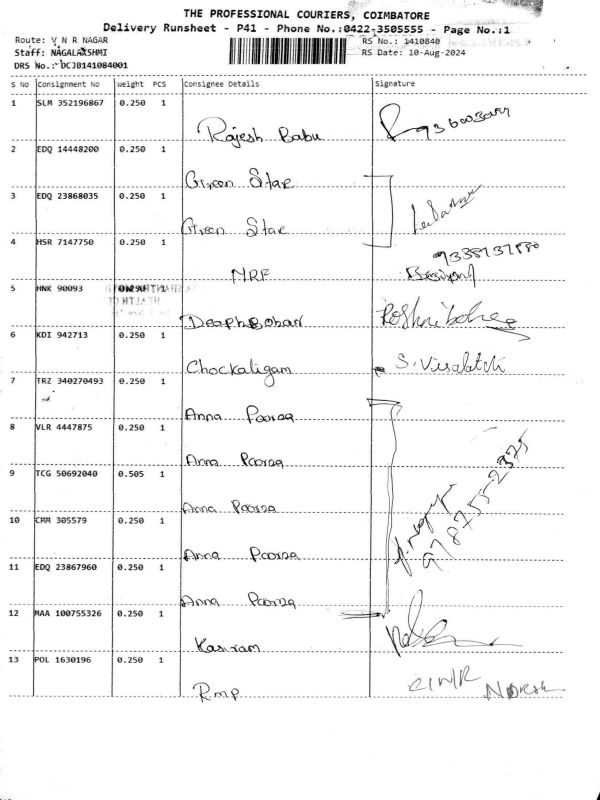 THE PROFESSIONAL COURIERS, COIMBATORE
Delivery Runsheet - P41 - Phone No.:0422-3505555 - Page No.:1
Route: V N R NAGAR
RS No.: 1410840
Staff: NAGALAKSHMI
RS Date: 10-Aug-2024
DRS No.: DCJB141084001
S No Consignment No Weight PCS Consignee Details Signature
1 SLM 352196867 0.250 1
Rajesh Babu
2 EDQ 14448200 0.250 1
Green Star
3 EDQ 23868035 0.250 1
Green Star
4 HSR 7147750 0.250 1
MRF
5 HNK 90093 1
6 KDI 942713 0.250 1
Chockaligam S. Visalatchi
7 TRZ 340270493 0.250 1
Anna Poorna
8 VLR 4447875 0.250 1
Anna Poorna
9 TCG 50692040 0.505 1
Anna Poorna
10 CMM 305579 0.250 1
Anna Poorna
11 EDQ 23867960 0.250 1
Anna Poorna
9787552375
12 MAA 100755326 0.250 1
Kasiram
13 POL 1630196 0.250 1
Rmp